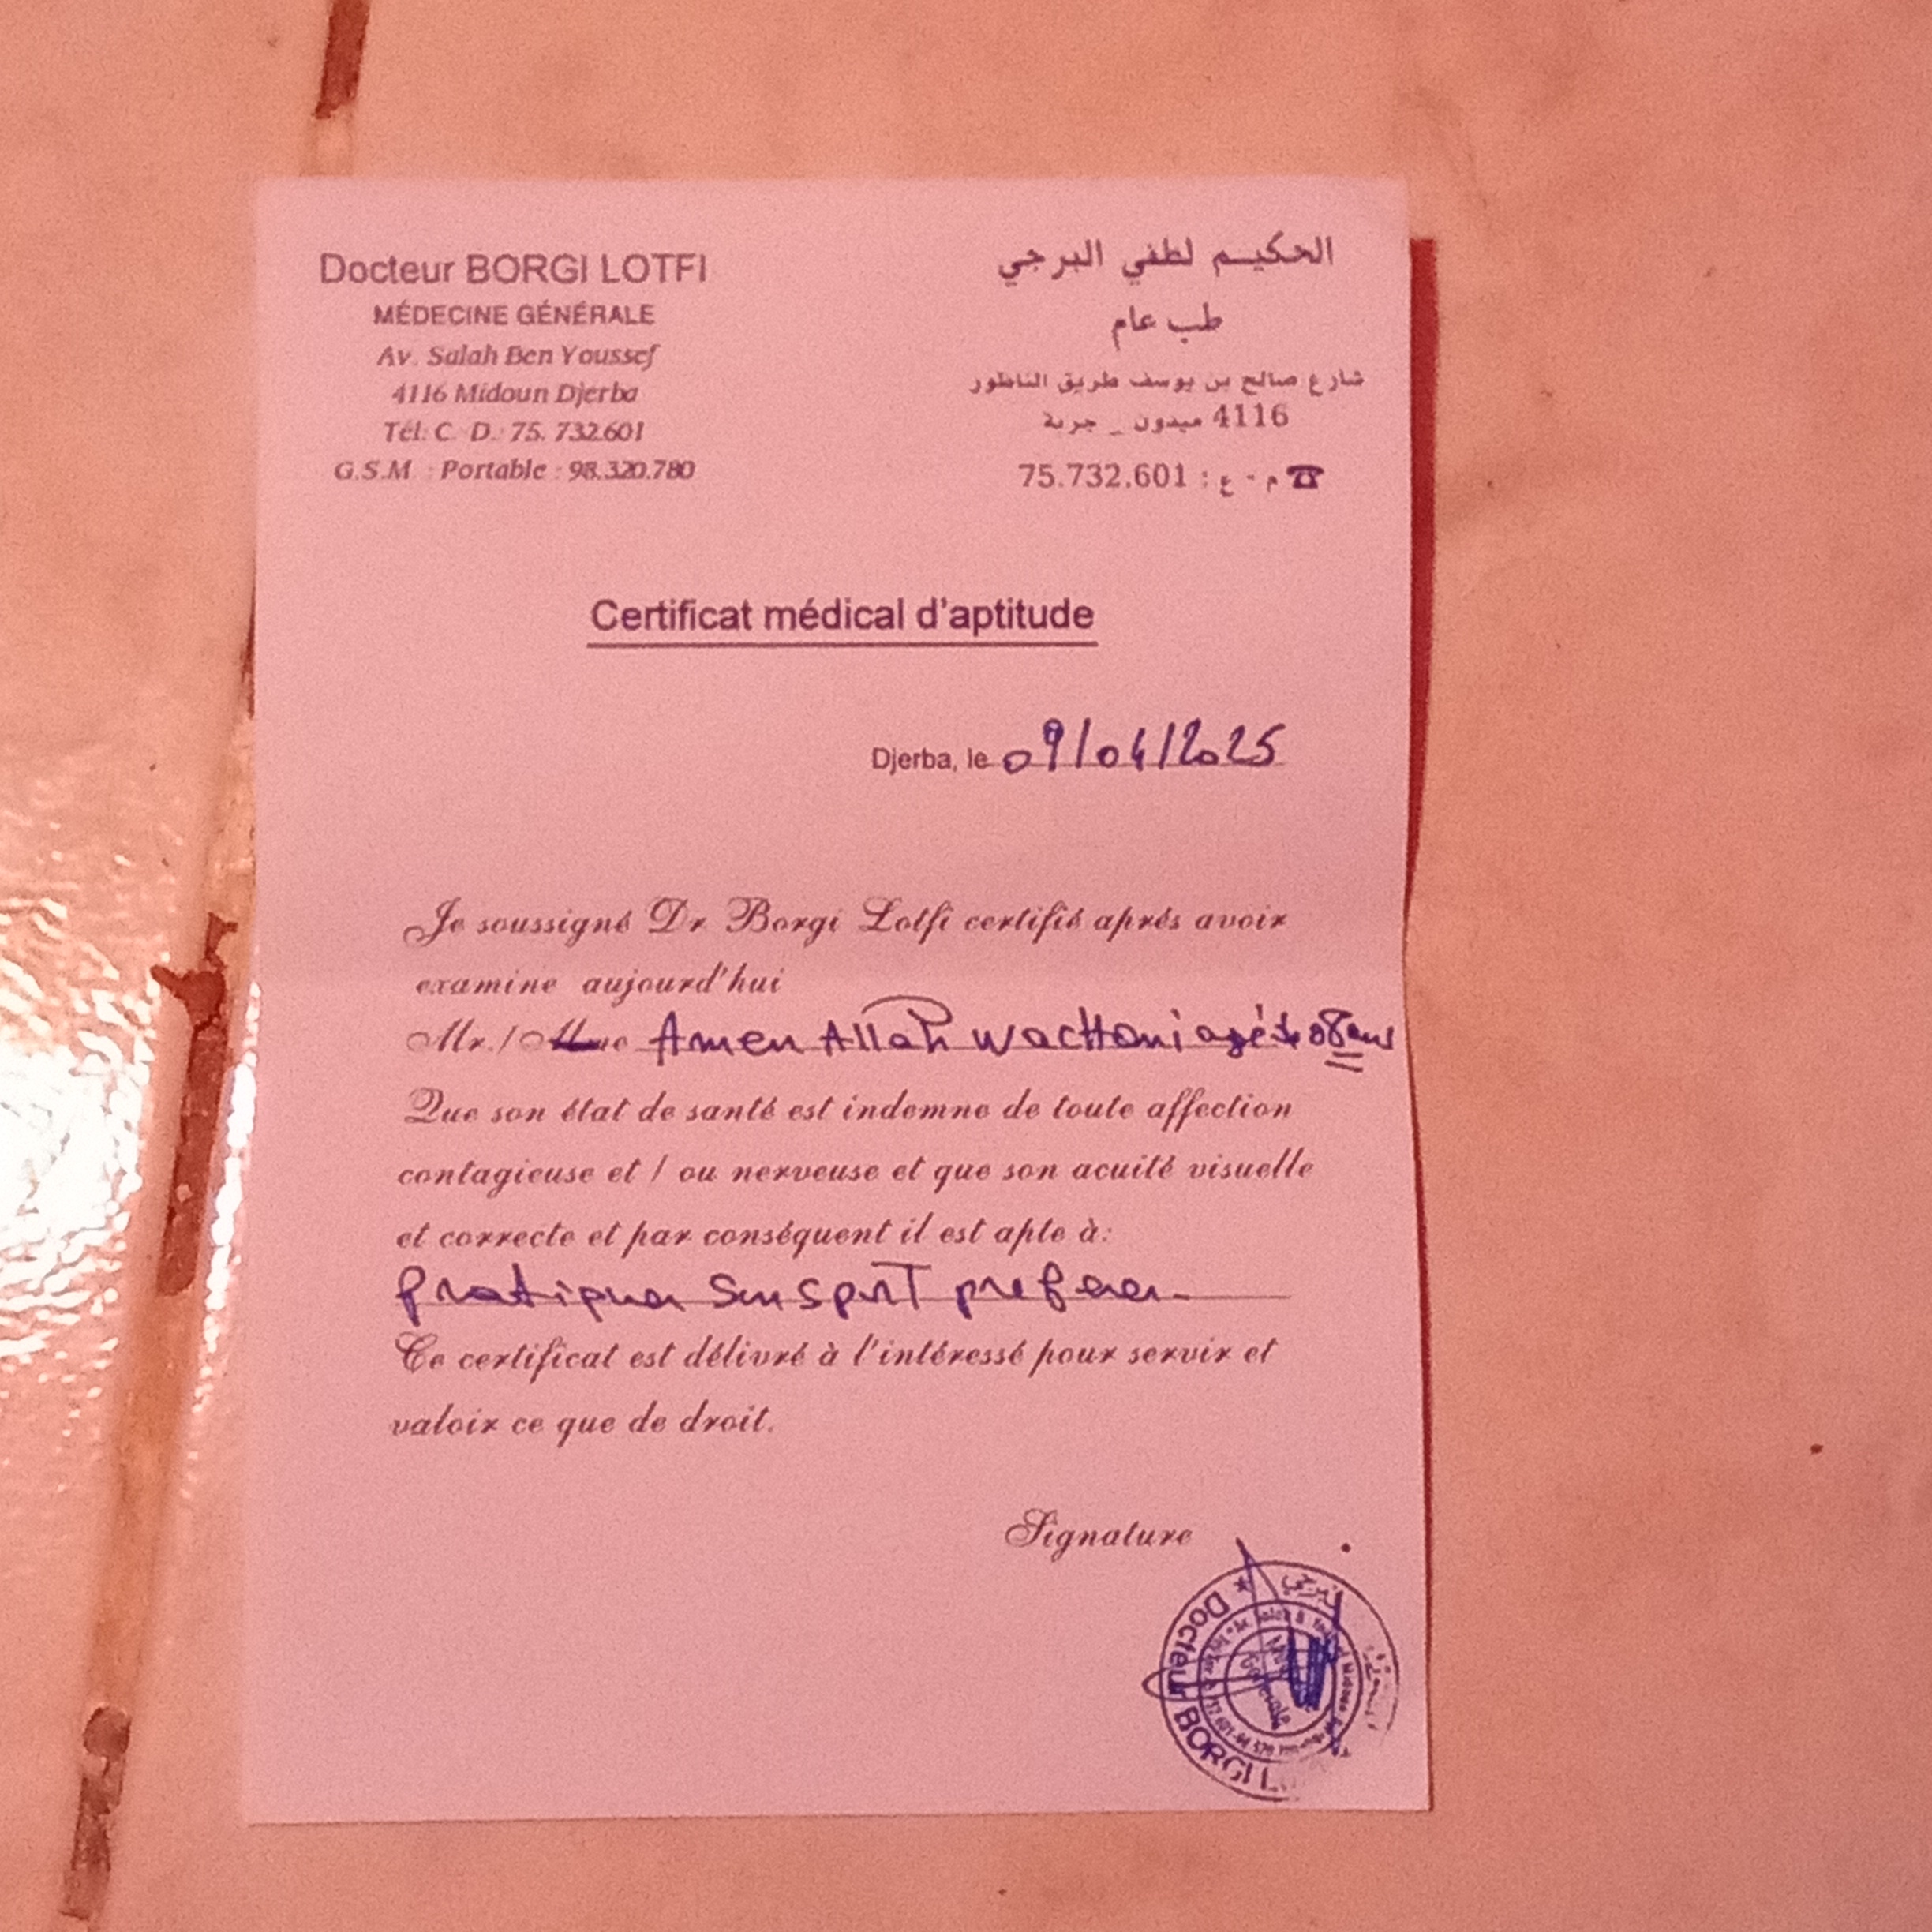 Docteur BORGI LOTFI
MÉDECINE GÉNÉRALE
Av. Salah Ben Youssef
4116 Midoun Djerba
Tél: C. D.: 75. 732.601
G.S.M. : Portable : 98.320.780
الحكيم لطفي البرجي
طب عام
شارع صالح بن يوسف طريق الناظور
4116 ميدون _ جربة
☎ م - ع : 75.732.601
Certificat médical d'aptitude
Djerba, le 09/04/2025
Je soussigné Dr Borgi Lotfi certifié aprés avoir
examine aujourd'hui
Mr./ Amen Allah Wachtani agé de 08 ans
Que son état de santé est indemne de toute affection
contagieuse et / ou nerveuse et que son acuité visuelle
et correcte et par conséquent il est apte à:
pratiquer son sport preferer.
Ce certificat est délivré à l'intéressé pour servir et
valoir ce que de droit.
Signature
Docteur BORGI